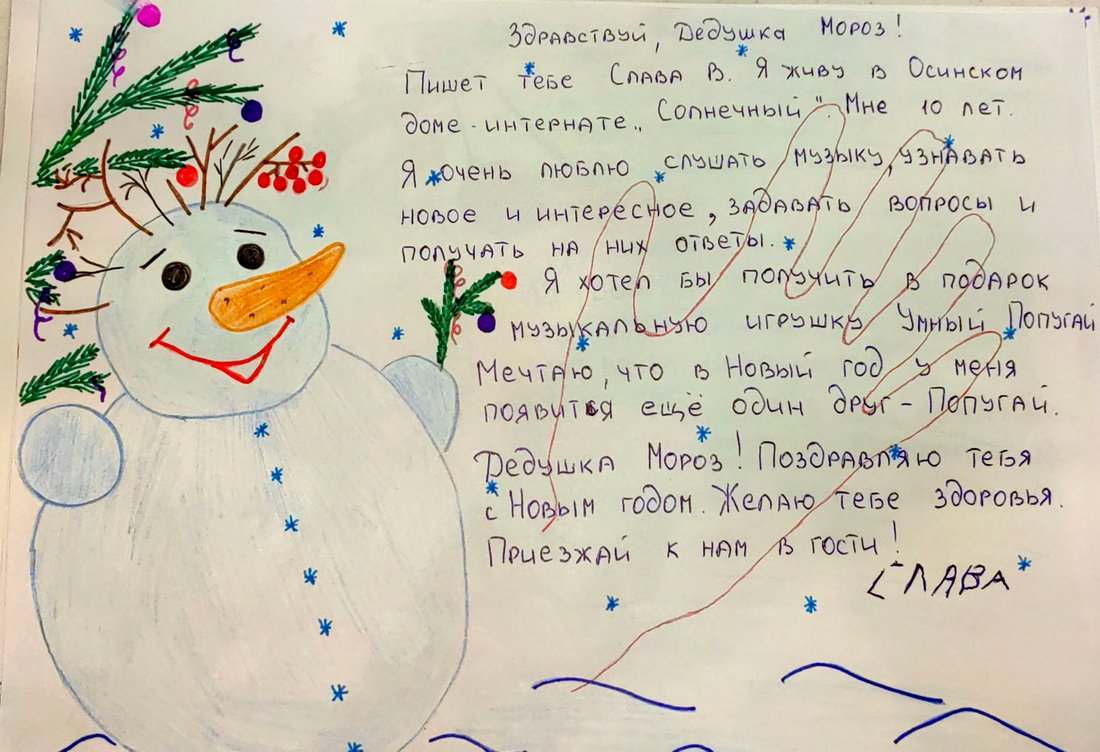 Здравствуй, Дедушка Мороз!
Пишет тебе Слава В. Я живу в Осинском
доме-интернате „Солнечный". Мне 10 лет.
Я очень люблю слушать музыку, узнавать
новое и интересное, задавать вопросы и
получать на них ответы.
Я хотел бы получить в подарок
музыкальную игрушку Умный Попугай
Мечтаю, что в Новый год у меня
появится ещё один друг - Попугай.
Дедушка Мороз! Поздравляю тебя
с Новым годом. Желаю тебе здоровья.
Приезжай к нам в гости!
СЛАВА